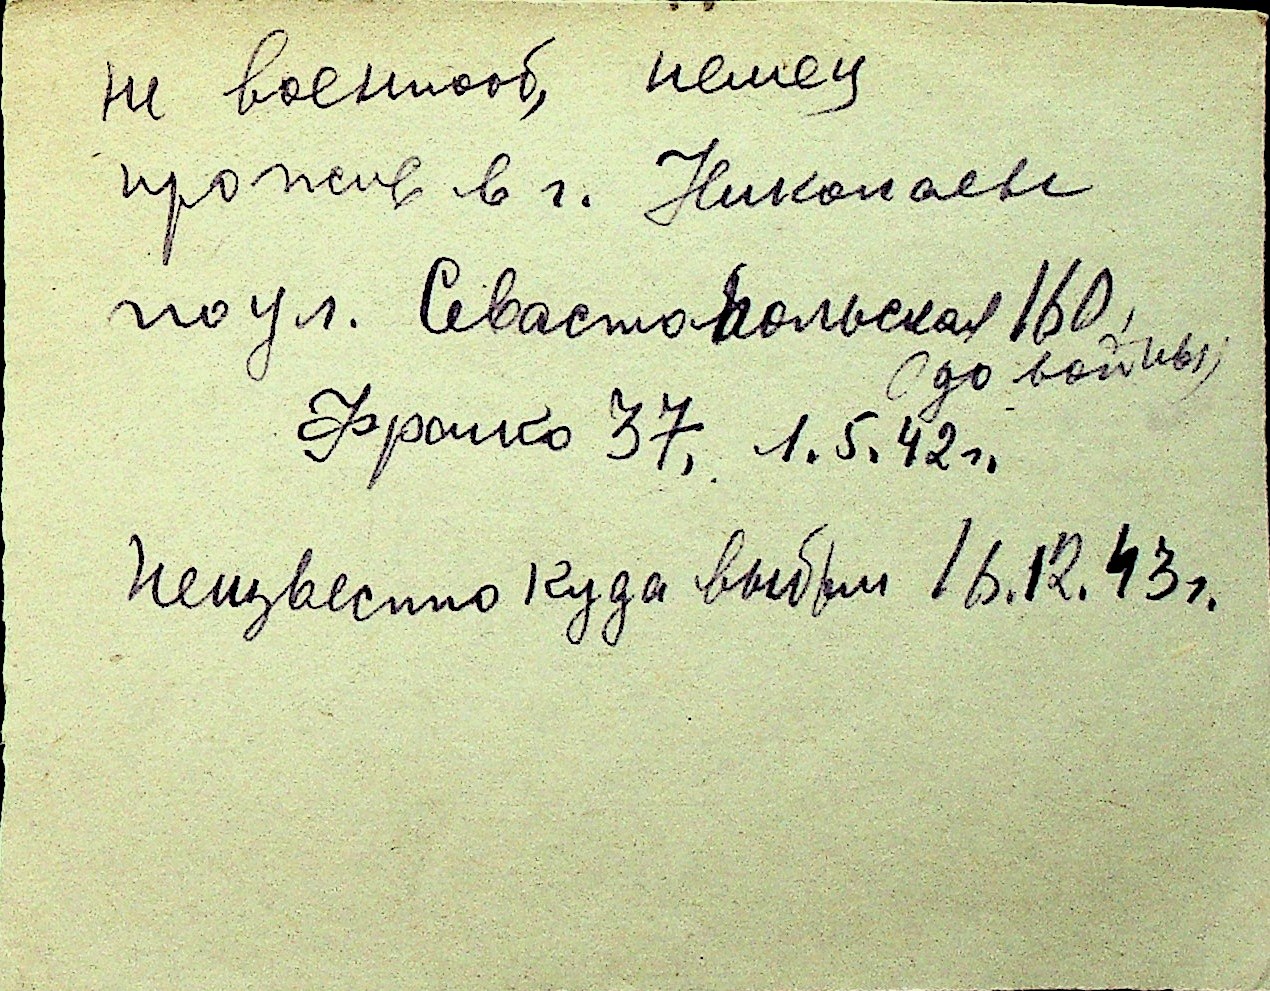 не военнооб, немец
прожив в г. Николаеве
по ул. Севастопольская 160,
(до войны)
Франко 37, 1.5.42 г.
Неизвестно куда выбыл 16.12.43 г.